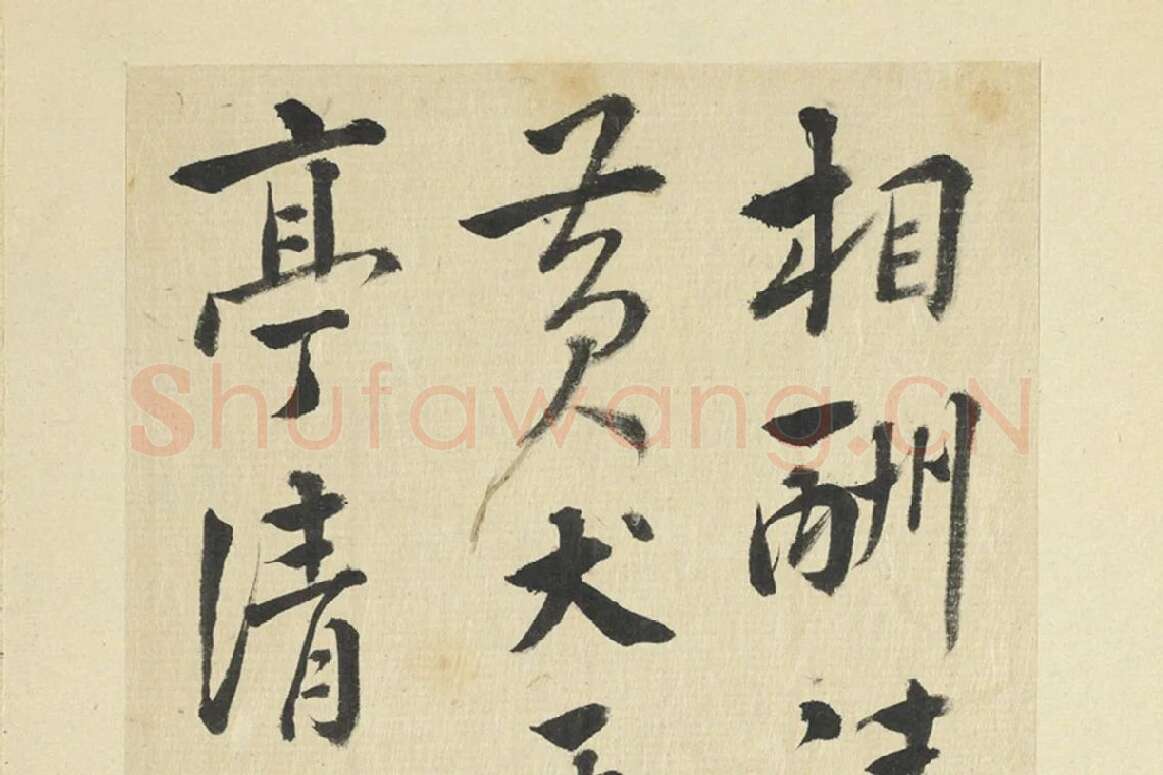 相酬
黄犬
亭清
Shufawang.CN